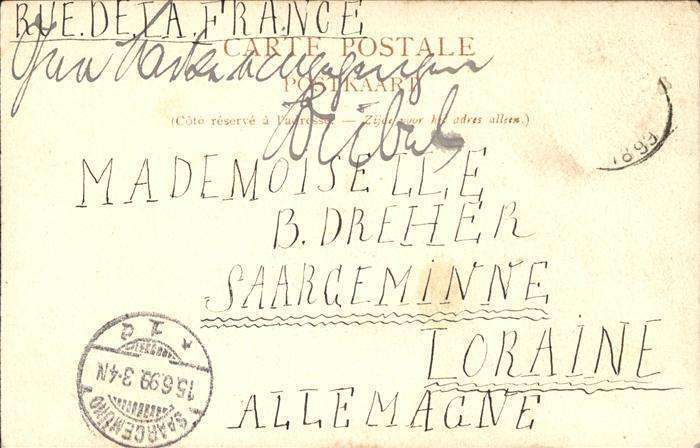 RUE.DE.LA.FRANCE
CARTE POSTALE
POSTKAART
(Côté réservé à l'adresse. — Zijde voor het adres alleen.)
1899
MADEMOISELLE
B. DREHER
SAARGEMINNE
LORAINE
ALLEMAGNE
SAARGEMÜND
15.6.99.3-4N
* 1 d